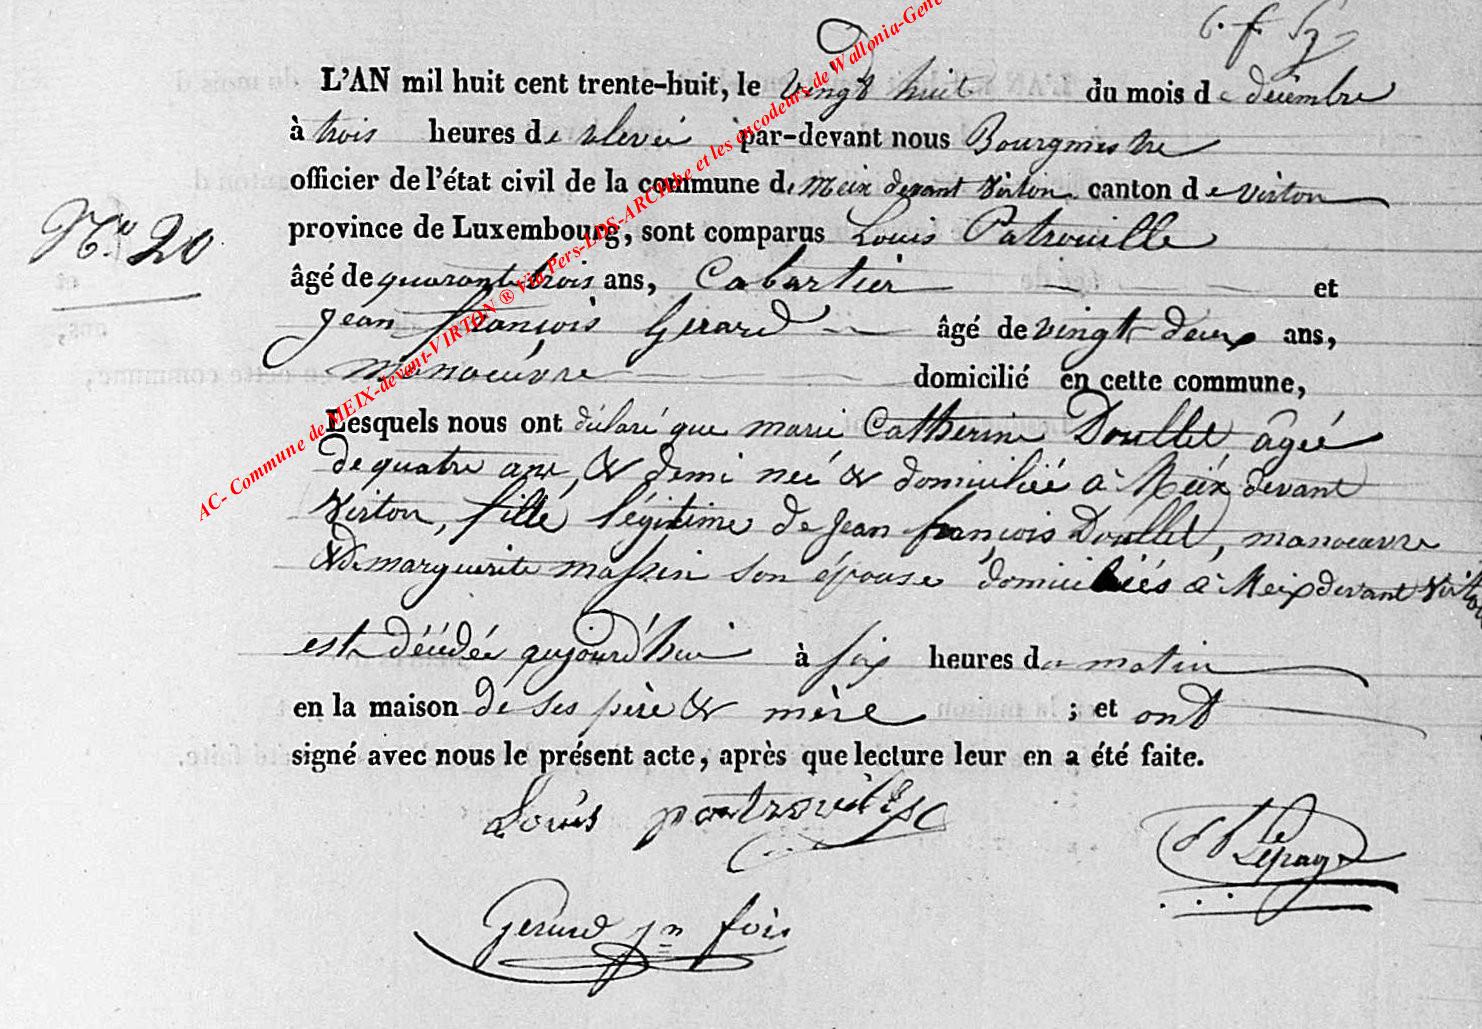 L'AN mil huit cent trente-huit, le vingt huit du mois de décembre
à trois heures de relevée par-devant nous Bourgmestre
officier de l'état civil de la commune de Meix devant Virton canton de Virton
N° 20
province de Luxembourg, sont comparus Louis Patrouille
âgé de quarante trois ans, Cabartier et
Jean françois Gérard âgé de vingt deux ans,
manoeuvre domicilié en cette commune,
Lesquels nous ont déclaré que marie Catherine Doullet âgée
de quatre ans, & demi née & domiciliée à Meix devant
Virton, fille légitime de Jean françois Doullet, manoeuvre
& de marguerite massin son épouse domiciliés à Meix devant Virton
est décédée aujourd'hui à six heures du matin
en la maison de ses père & mère ; et ont
signé avec nous le présent acte, après que lecture leur en a été faite.
Louis patrouille
Lepage
Gerard jn fois
AC- Commune de MEIX-devant-VIRTON ® Via Pers-LDS-ARCH.be et les encodeurs de Wallonia-Gene